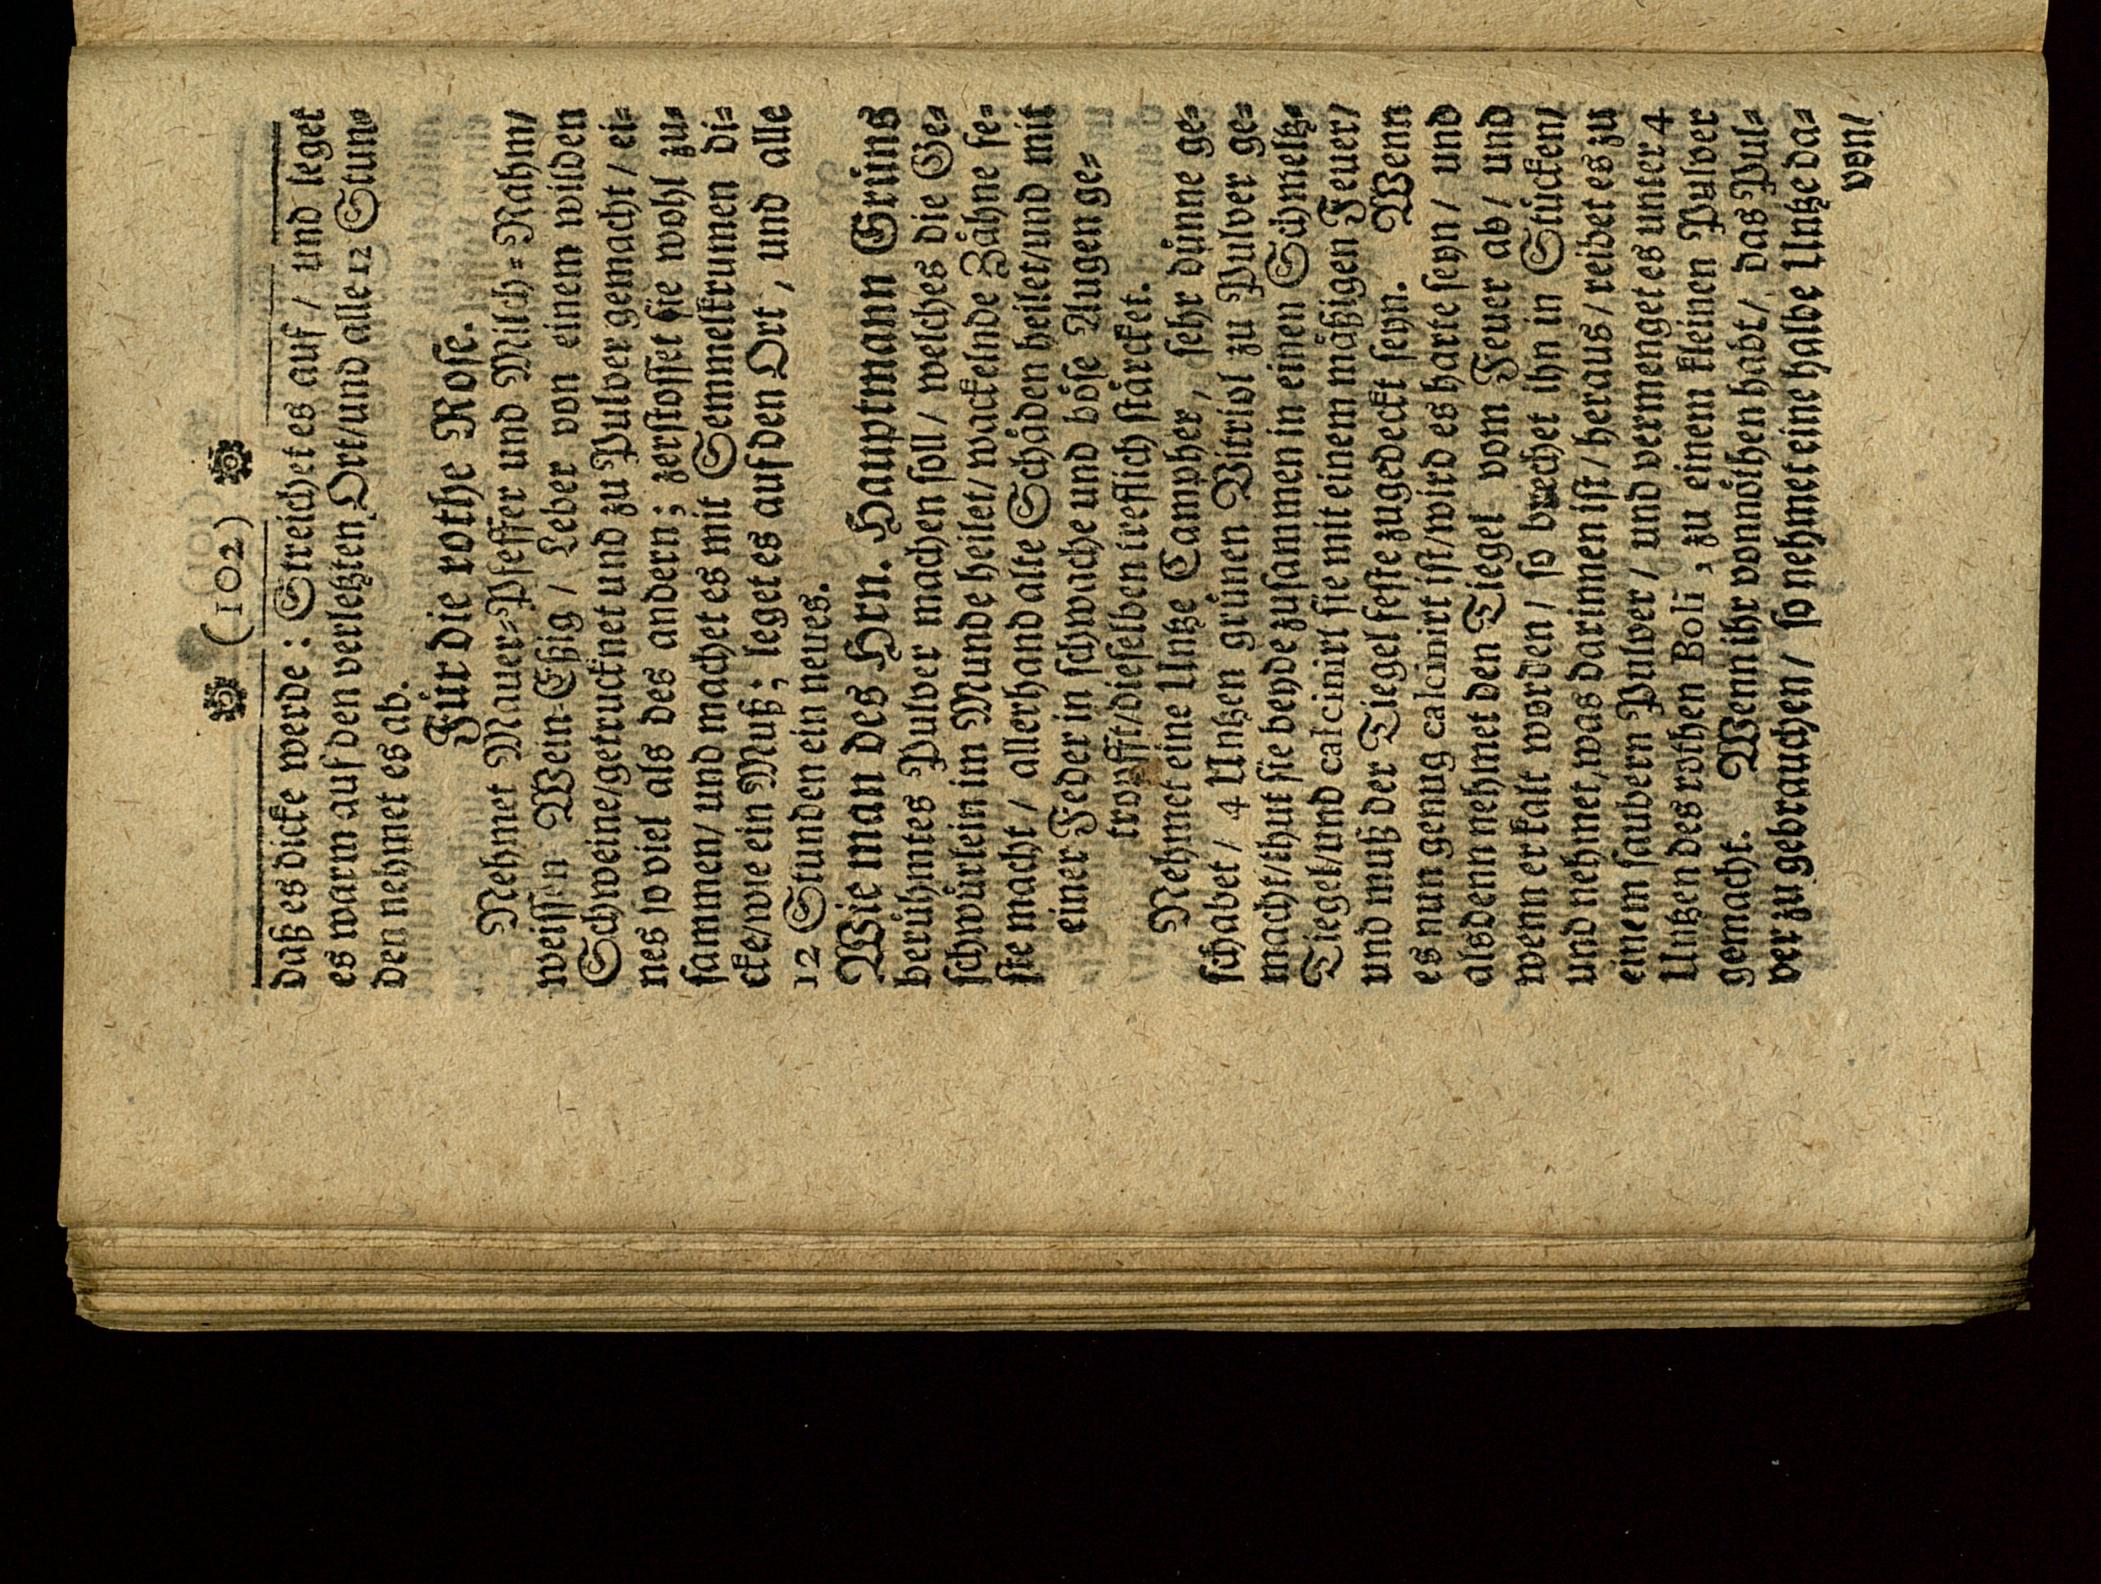 (102)
daß es dicke werde : Streichet es auf / und leget
es warm auf den verletzten Ort/und alle 12 Stun⸗
den nehmet es ab.
Fuͤr die rothe Rose.
Nehmet Mauer⸗Pfeffer und Milch⸗Rahm/
weissen Wein-Eßig / Leber von einem wilden
Schweine/getrucknet und zu Pulver gemacht / ei⸗
nes so viel als des andern ; zerstosset sie wohl zu⸗
sammen/ und machet es mit Semmelkrumen di⸗
cke/wie ein Muß ; leget es auf den Ort , und alle
12 Stunden ein neues.
Wie man des Hrn. Hauptmann Gruͤns
beruͤhmtes Pulver machen soll / welches die Ge⸗
schwuͤrlein im Munde heilet/ wackelnde Zaͤhne fe⸗
ste macht / allerhand alte Schaͤden heilet/und mit
einer Feder in schwache und boͤse Augen ge⸗
tropfft/dieselben treflich staͤrcket.
Nehmet eine Untze Campher , sehr duͤnne ge⸗
schabet / 4 Untzen gruͤnen Vitriol zu Pulver ge⸗
macht/thut sie beyde zusammen in einen Schmeltz⸗
Tiegel/und calcinirt sie mit einem maͤßigen Feuer/
und muß der Tiegel feste zugedeckt seyn. Wenn
es nun genug calcinirt ist/wird es harte seyn / und
alsdenn nehmet den Tiegel vom Feuer ab / und
wenn er kalt worden / so brechet ihn in Stuͤcken/
und nehmet,was darinnen ist / heraus / reibet es zu
einem saubern Pulver / und vermenget es unter 4
Untzen des rothen Boli , zu einem kleinen Pulver
gemacht. Wenn ihr vonnoͤthen habt / das Pul⸗
ver zu gebrauchen / so nehmet eine halbe Untze da⸗
von/